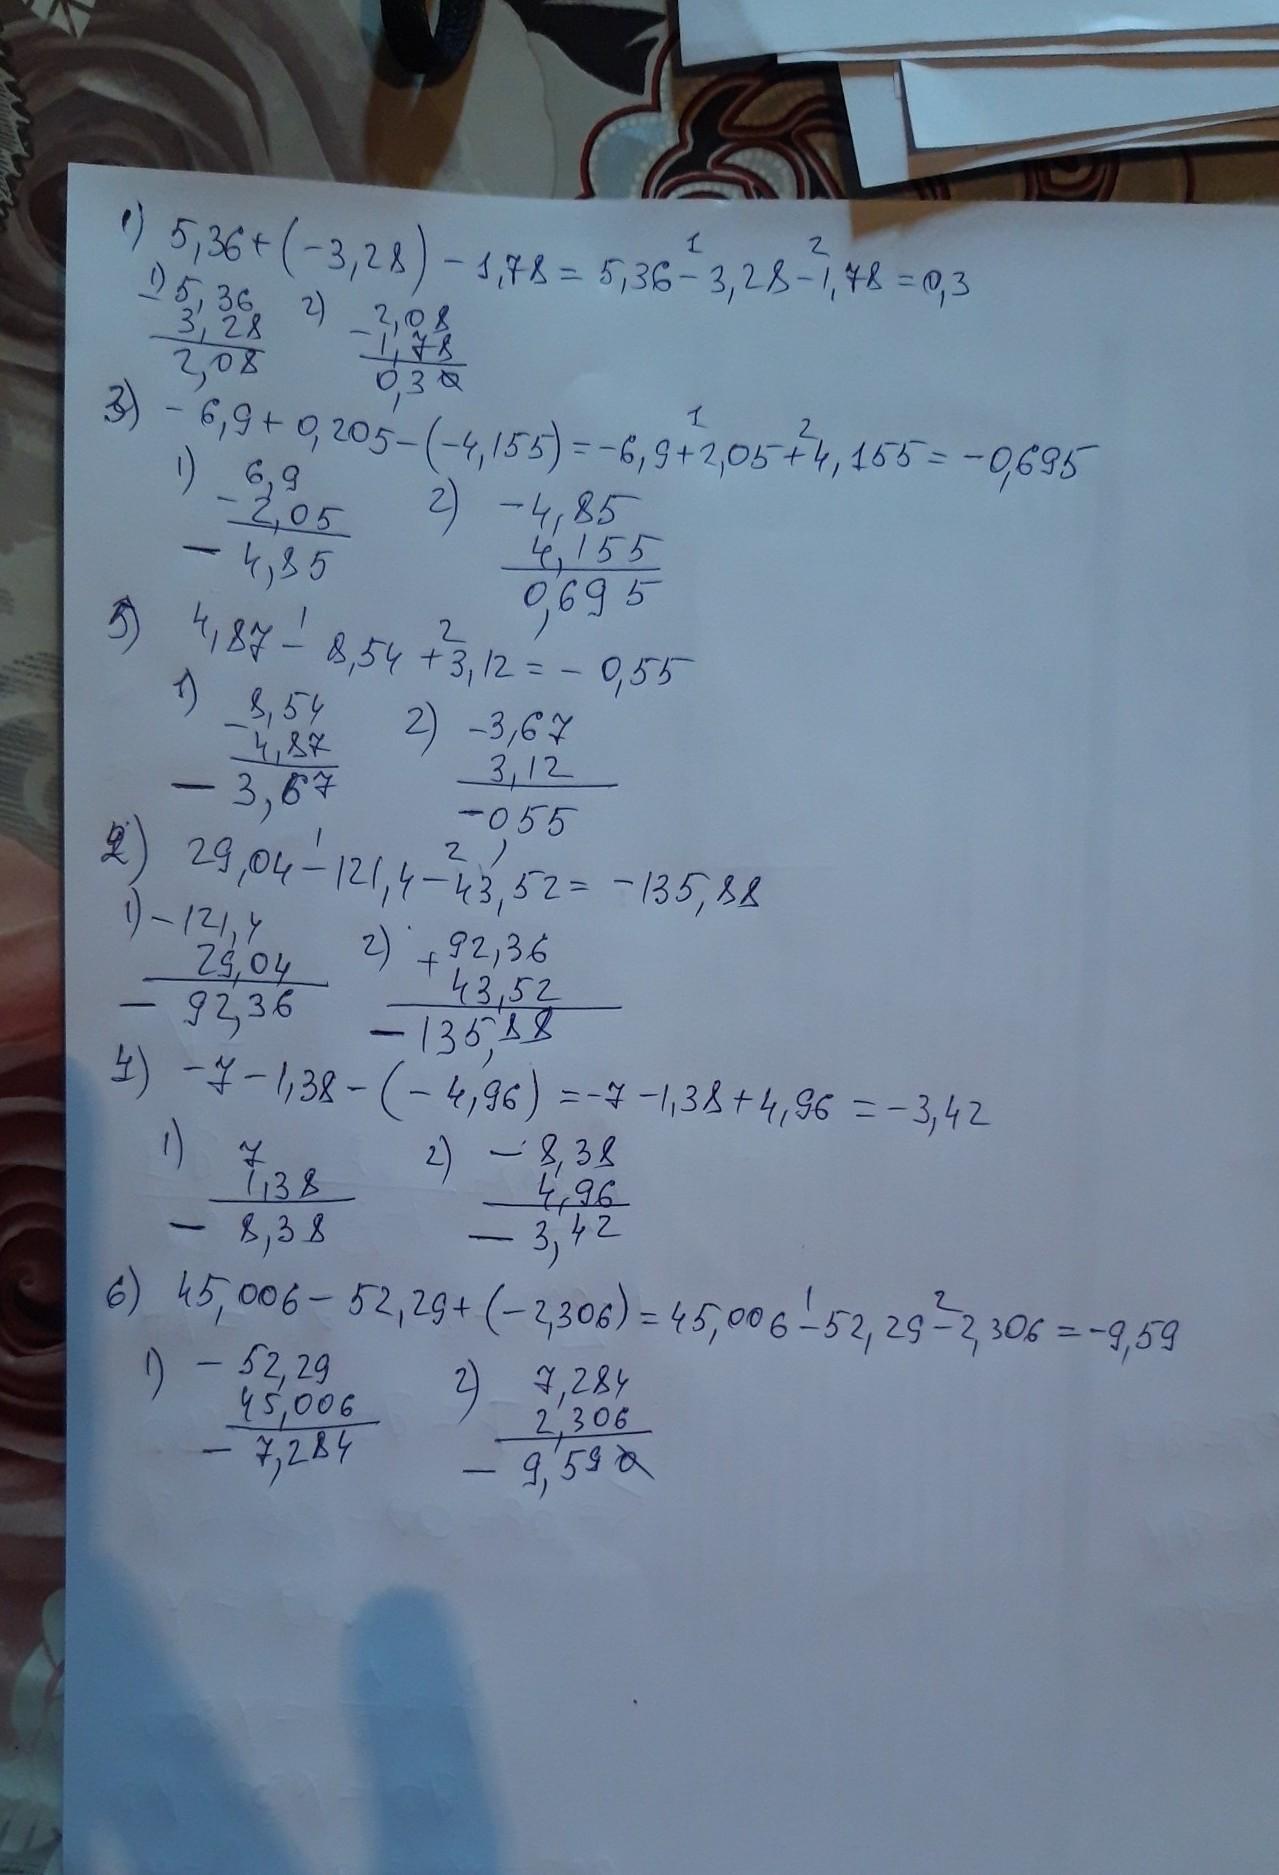 1) 5,36+(-3,28)-1,78=5,36-3,28-1,78=0,3
1 2
1) -5,36 2) -2,08
3,28 1,78
2,08 0,30
3) -6,9+0,205-(-4,155)=-6,9+2,05+4,155=-0,695
1 2
1) 6,9 2) -4,85
-2,05 4,155
-4,85 0,695
5) 4,87-8,54+3,12=-0,55
1 2
1) -8,54 2) -3,67
4,87 3,12
-3,67 -0,55
2) 29,04-121,4-43,52=-135,88
1 2
1) -121,4 2) +92,36
29,04 43,52
-92,36 -135,88
4) -7-1,38-(-4,96)=-7-1,38+4,96=-3,42
1) 7 2) -8,38
1,38 4,96
-8,38 -3,42
6) 45,006-52,29+(-2,306)=45,006-52,29-2,306=-9,59
1 2
1) -52,29 2) 7,284
45,006 2,306
-7,284 -9,590